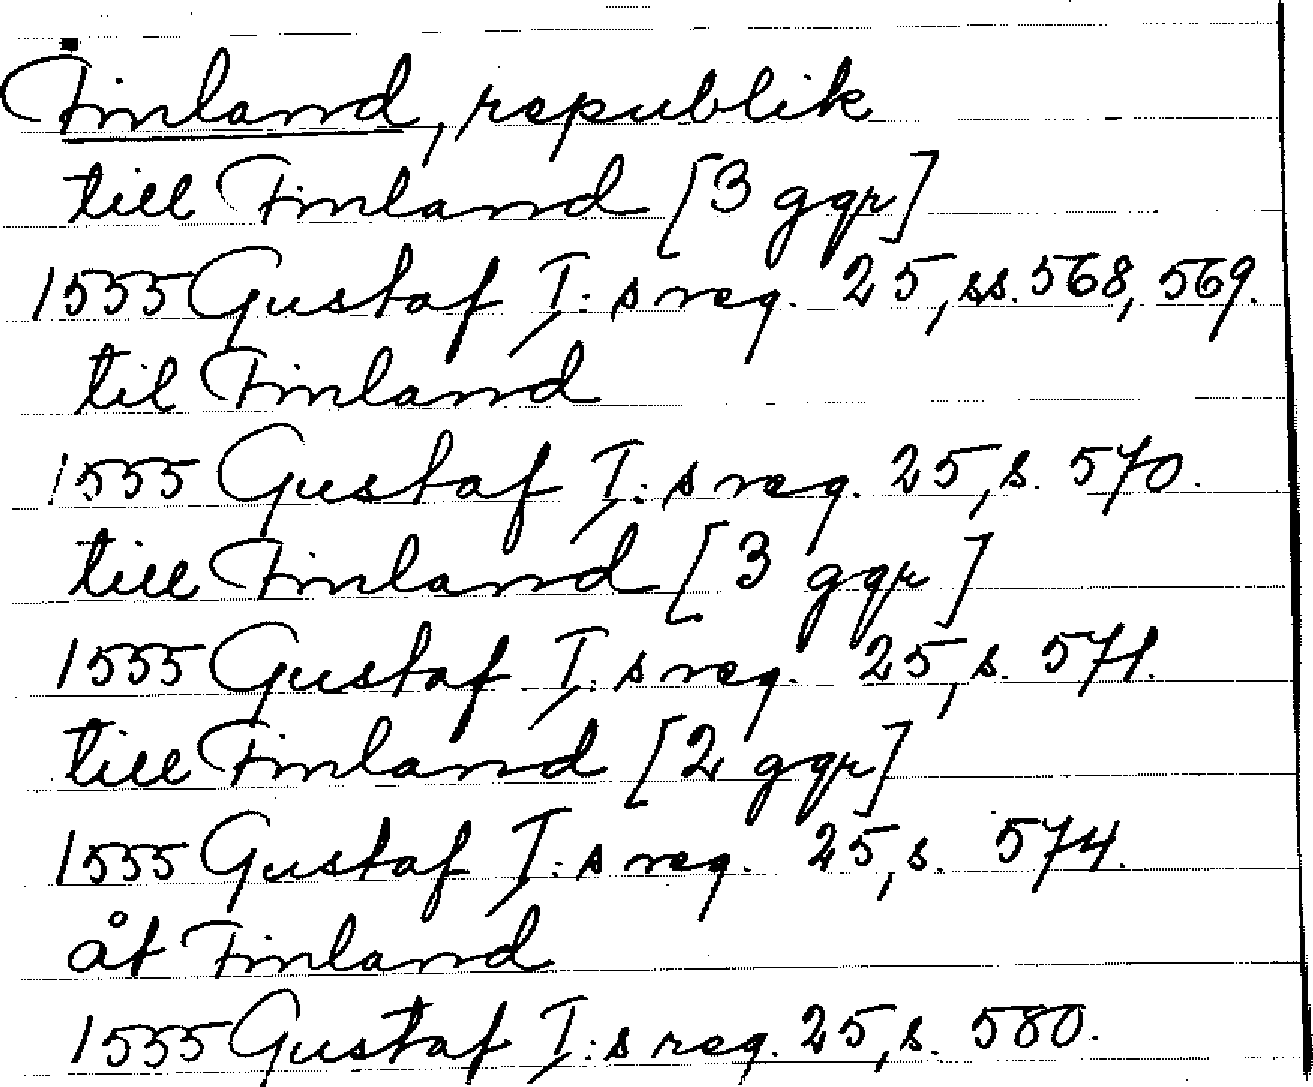 Finland, republik
till Finland [3 ggr]
1555 Gustaf I:s reg. 25, ss. 568, 569.
til Finland
1555 Gustaf I:s reg. 25, s. 570.
till Finland [3 ggr]
1555 Gustaf I:s reg. 25, s. 571.
till Finland [2 ggr]
1555 Gustaf I:s reg. 25, s. 574.
åt Finland
1555 Gustaf I:s reg. 25, s. 580.